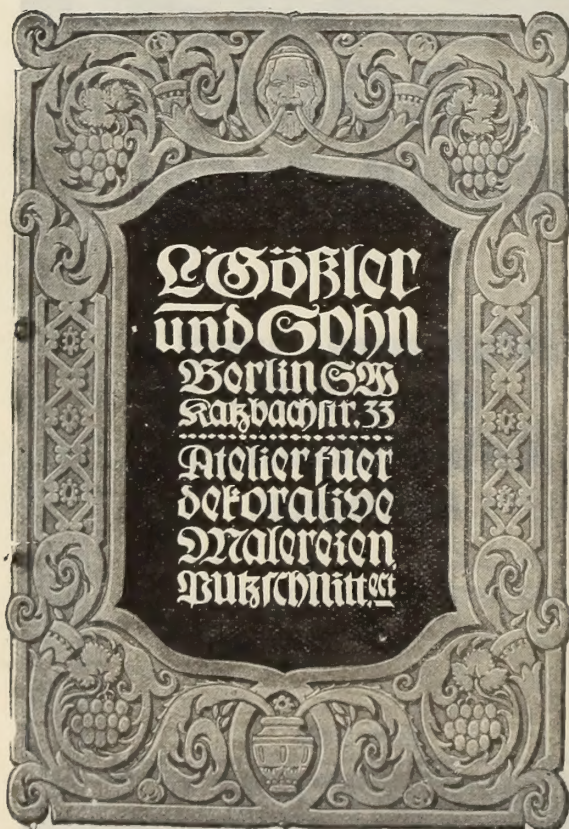 L. Gößler
und Sohn
Berlin SW
Katzbachstr. 33
Atelier fuer
dekorative
Malereien
Putzschnitt, ect